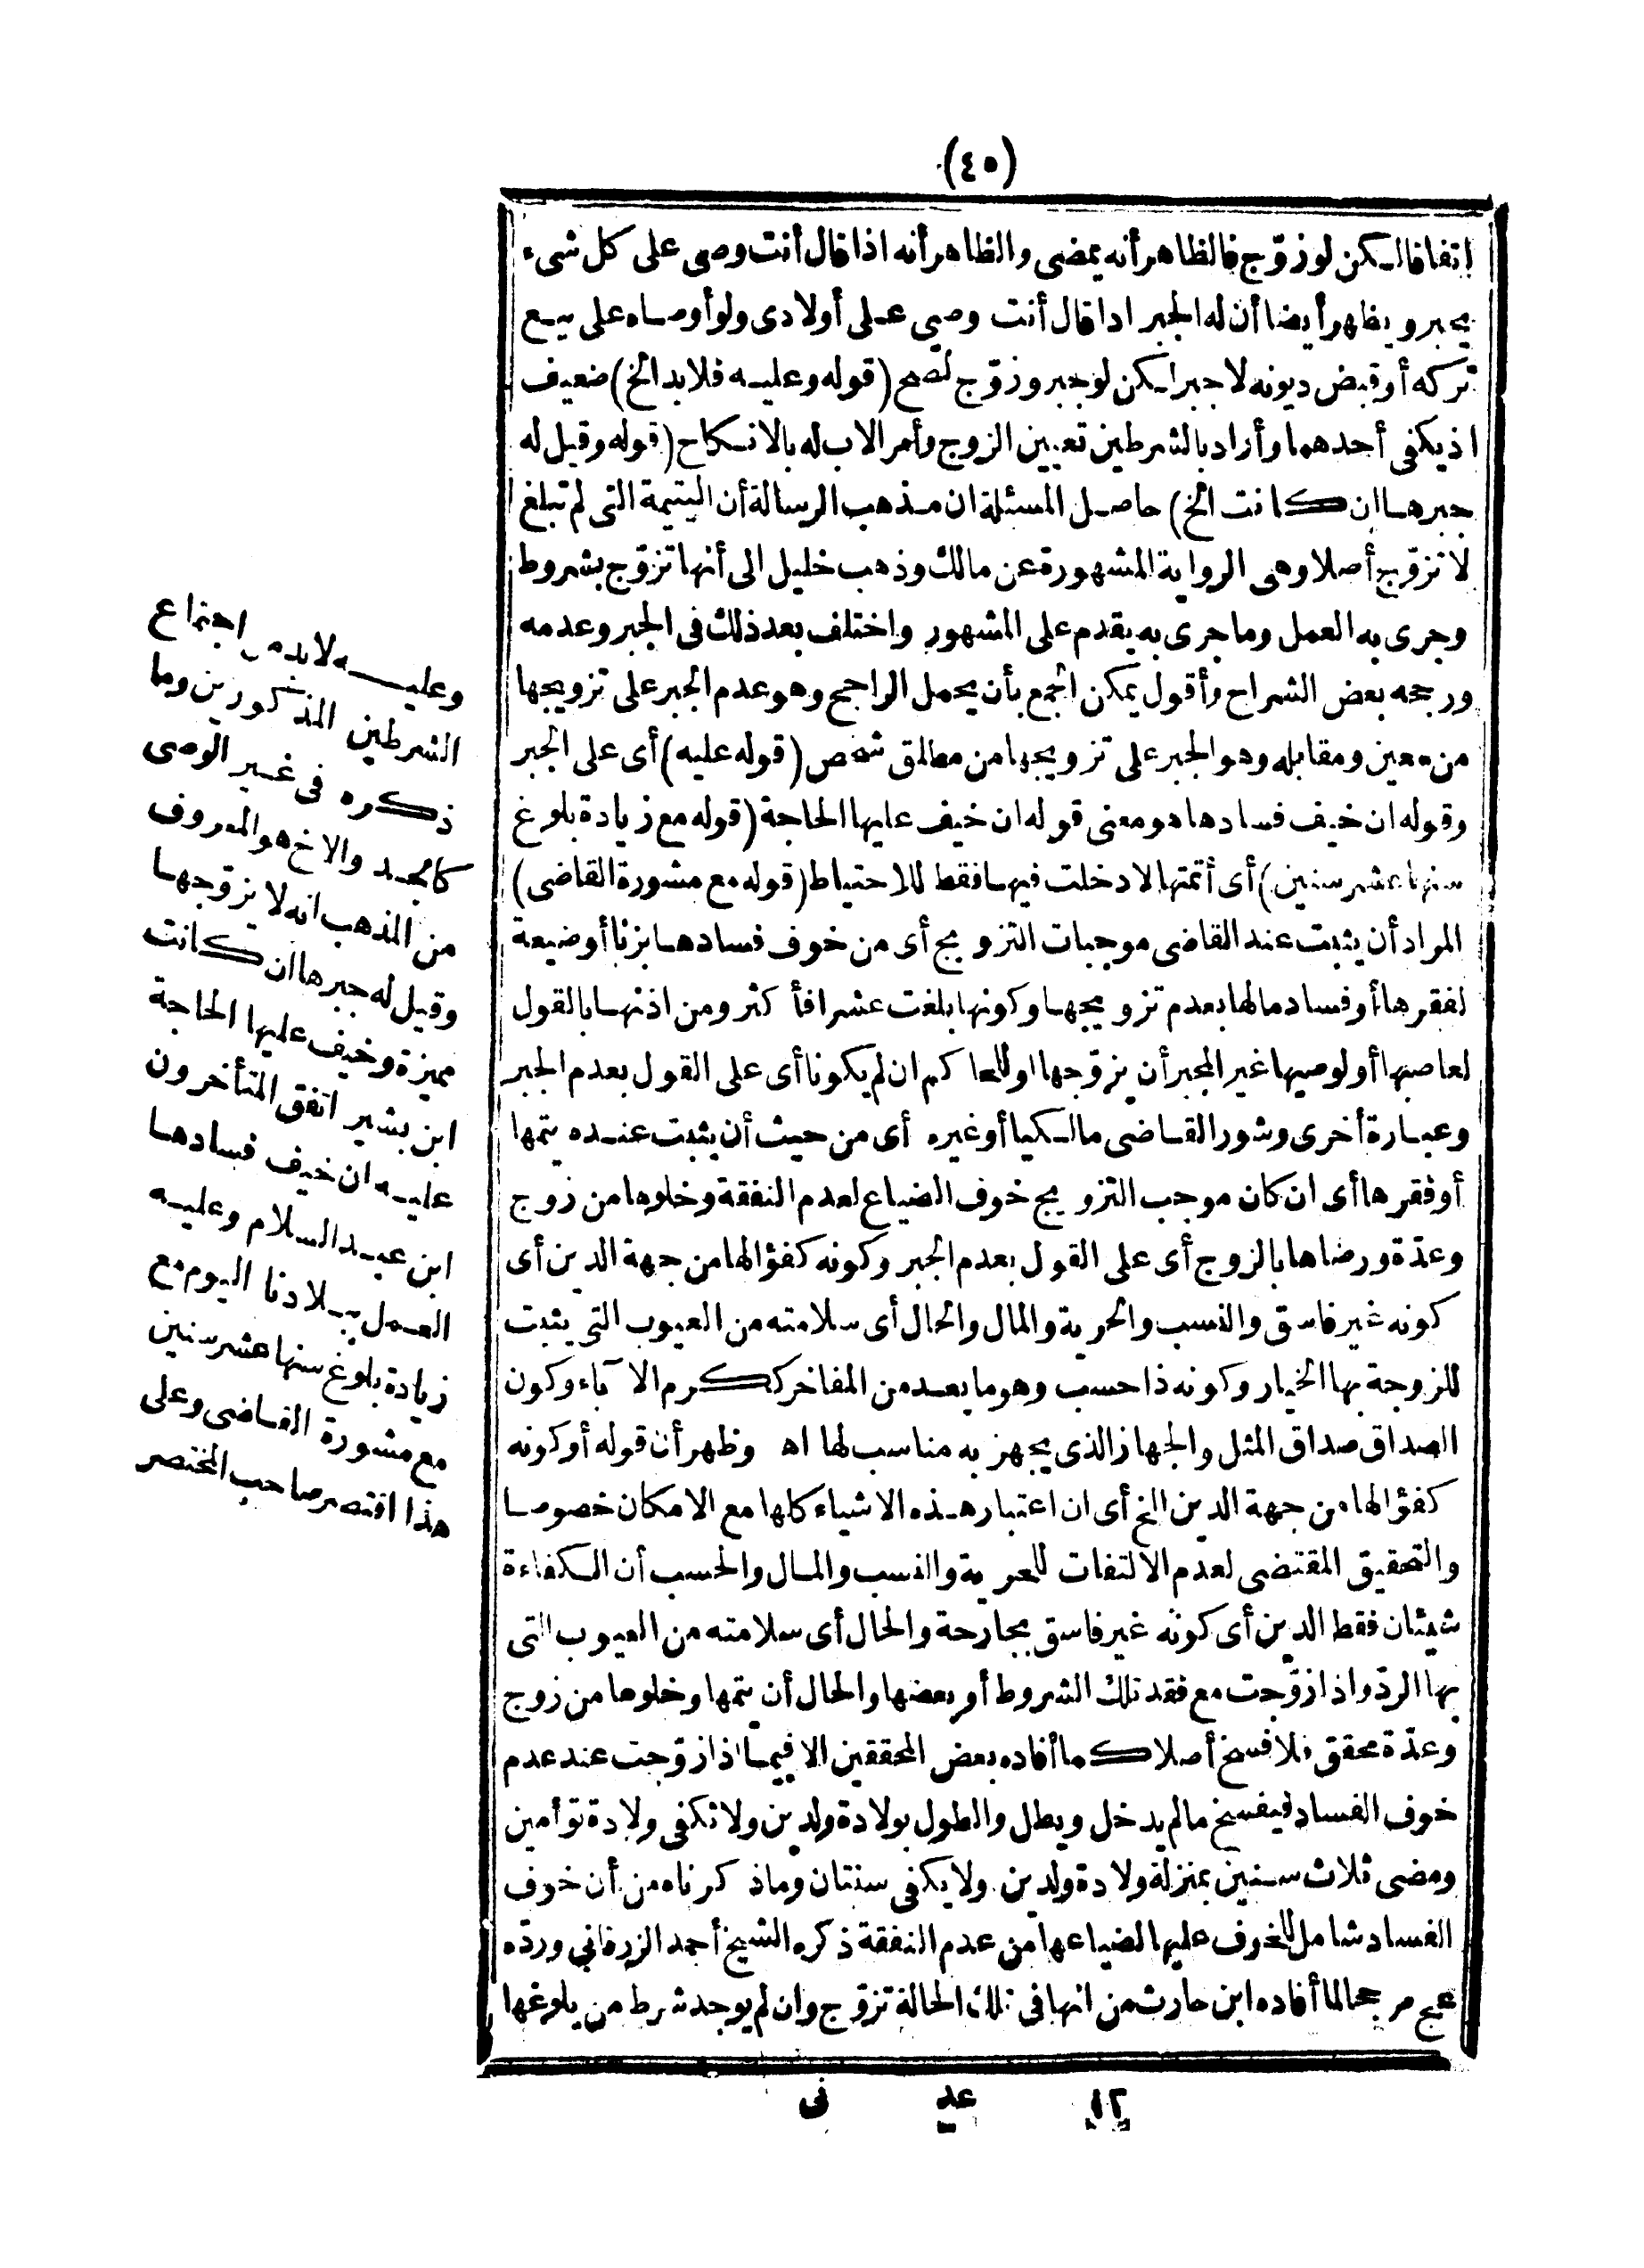 (٤٥)
اتفاقا لكن لو زوّج فالظاهر أنه يمضى والظاهر أنه اذا قال أنت وصى على كل شىء
يجبر ويظهر أيضا أن له الجبر اذا قال أنت وصى على أولادى ولو أوصاه على بيع
تركه أو قبض ديونه لا جبر لكن لو جبر وزوّج لصح (قوله وعليه فلابد الخ) ضعيف
اذ يكفى أحدهما وأراد بالشرطين تعيين الزوج وأمر الاب له بالانكاح (قوله وقيل له
جبرها ان كانت الخ) حاصل المسئلة ان مذهب الرسالة أن اليتيمة التى لم تبلغ
لا تزوّج أصلا وهى الرواية المشهورة عن مالك وذهب خليل الى أنها تزوّج بشروط
وجرى به العمل وما جرى به يقدم على المشهور واختلف بعد ذلك فى الجبر وعدمه
ورجحه بعض الشراح وأقول يمكن الجمع بأن يحمل الراجح وهو عدم الجبر على تزويجها
من معين ومقابله وهو الجبر على تزويجها من مطلق شخص (قوله عليه) أى على الجبر
وقوله ان خيف فسادها هو معنى قوله ان خيف عليها الحاجة (قوله مع زيادة بلوغ
سنها عشر سنين) أى أتمتها لا دخلت فيها فقط للاحتياط (قوله مع مشورة القاضى)
المراد أن يثبت عند القاضى موجبات التزويج أى من خوف فسادها بزنا أو ضيعة
لفقرها أو فساد مالها بعدم تزويجها وكونها بلغت عشرا فأكثر ومن اذنها بالقول
لعاصبها أو لوصيها غير المجبر أن يزوّجها او للحاكم ان لم يكونا أى على القول بعدم الجبر
وعبارة أخرى وشور القاضى مالكيا أو غيره أى من حيث أن يثبت عنده يتمها
أو فقرها أى ان كان موجب التزويج خوف الضياع لعدم النفقة وخلوها من زوج
وعدّة ورضاها بالزوج أى على القول بعدم الجبر وكونه كفؤا لها من جهة الدين أى
كونه غير فاسق والنسب والحرية والمال والحال أى سلامته من العيوب التى يثبت
للزوجة بها الخيار وكونه ذا حسب وهو ما يعد من المفاخر ككرم الآباء وكون
الصداق صداق المثل والجهاز الذى يجهز به مناسب لها اه وظهر أن قوله أو كونه
كفؤا لها من جهة الدين الخ أى ان اعتبار هذه الاشياء كلها مع الامكان خصوصا
والتحقيق المقتضى لعدم الالتفات للحرية والنسب والمال والحسب أن الكفاءة
شيئان فقط الدين أى كونه غير فاسق بجارحة والحال أى سلامته من العيوب التى
بها الردّ واذا زوّجت مع فقد تلك الشروط أو بعضها والحال أن يتمها وخلوها من زوج
وعدّة محقق فلا فسخ أصلا كما أفاده بعض المحققين الا فيما اذا زوّجت عند عدم
خوف الفساد فيفسخ ما لم يدخل ويطل والطول بولادة ولدين ولا تكفى ولادة توأمين
ومضى ثلاث سنين بمنزلة ولادة ولدين ولا يكفى سنتان وما ذكرناه من أن خوف
الفساد شامل للخوف عليها لضياعها من عدم النفقة ذكره الشيخ أحمد الزرقانى وردّه
عج مرجحا لما أفاده ابن حارث من انها فى تلك الحالة تزوّج وان لم يوجد شرط من بلوغها
١٢ عد نى
وعليه لا بد من اجتماع
الشرطين المذكورين وما
ذكره فى غير الوصى
كالجد والاخ هو المعروف
من المذهب انه لا يزوّجها
وقيل له جبرها ان كانت
مميزة وخيف عليها الحاجة
ابن بشير اتفق المتأخرون
عليه ان خيف فسادها
ابن عبد السلام وعليه
العمل ببلادنا اليوم مع
زيادة بلوغ سنها عشر سنين
مع مشورة القاضى وعلى
هذا اقتصر صاحب المختصر